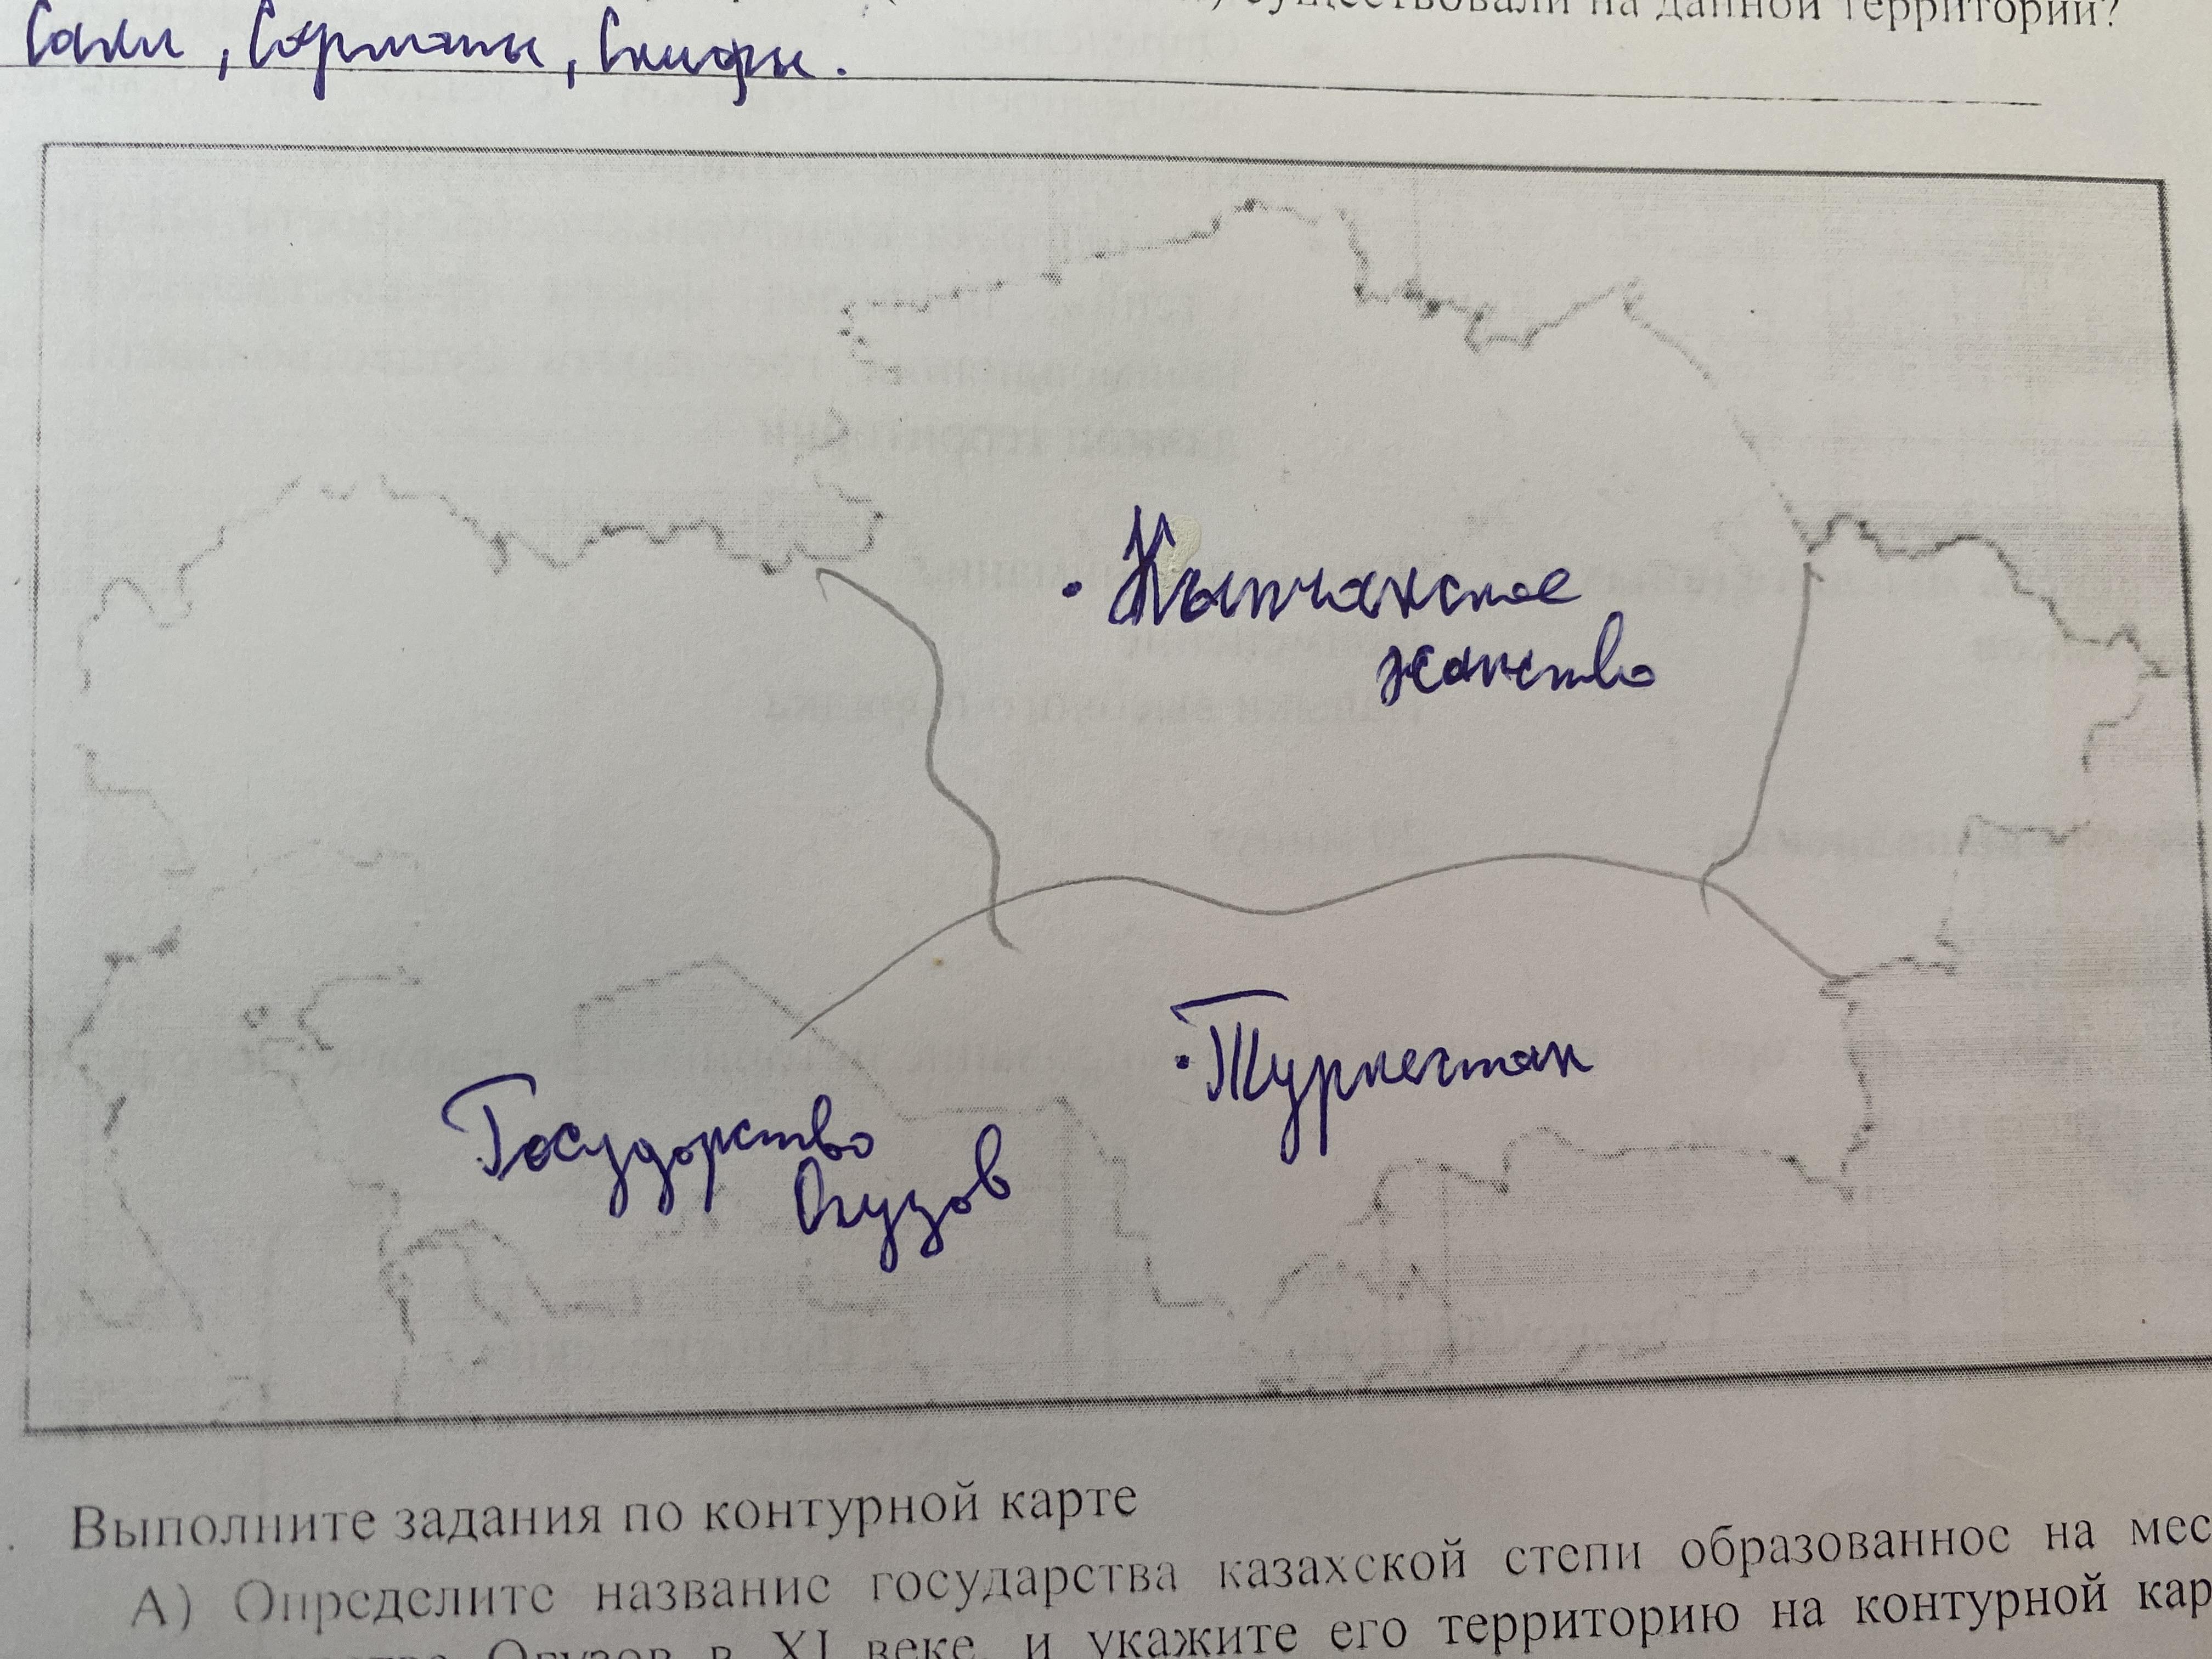 существовали на данной территории?
Саки, Сарматы, Скифы.
• Кыпчакское
ханство
• Туркестан
Государство
Огузов
. Выполните задания по контурной карте
А) Определите название государства казахской степи образованное на мес
Огузов в XI веке, и укажите его территорию на контурной кар